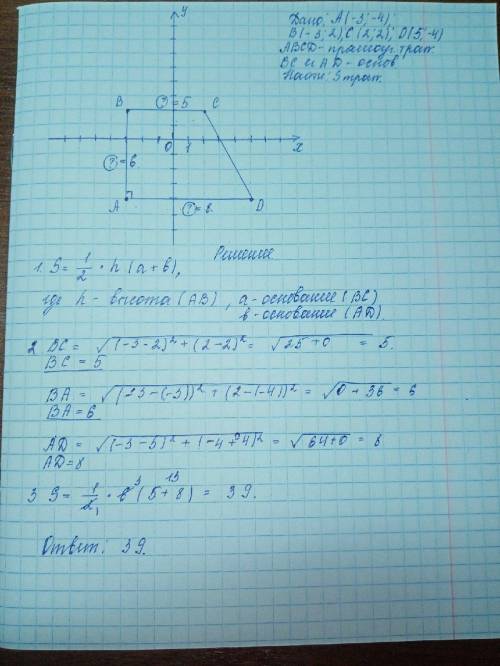 Дано: A(-3; -4);
B(-3; 2), C(2; 2); D(5; -4)
ABCD - прямоуг. трап.
BC и AD - основ
Найти: S трап.
y
B ? = 5 C
0 1 x
? = 6
A ? = 8 D
Решение
1. S = 1/2 · h (a + b),
где h - высота (AB), a - основание (BC)
b - основание (AD)
2. BC = √(-3-2)² + (2-2)² = √25+0 = 5.
BC = 5
BA = √(-3-(-3))² + (2-(-4))² = √0+36 = 6
BA = 6
AD = √(-3-5)² + (-4+4)² = √64+0 = 8
AD = 8
3 S = 1/2 · 6 (5+8) = 39.
3 13
1
Ответ: 39.